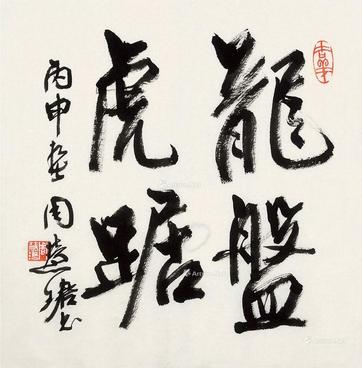 龍盤
虎踞
丙申春周慧珺書